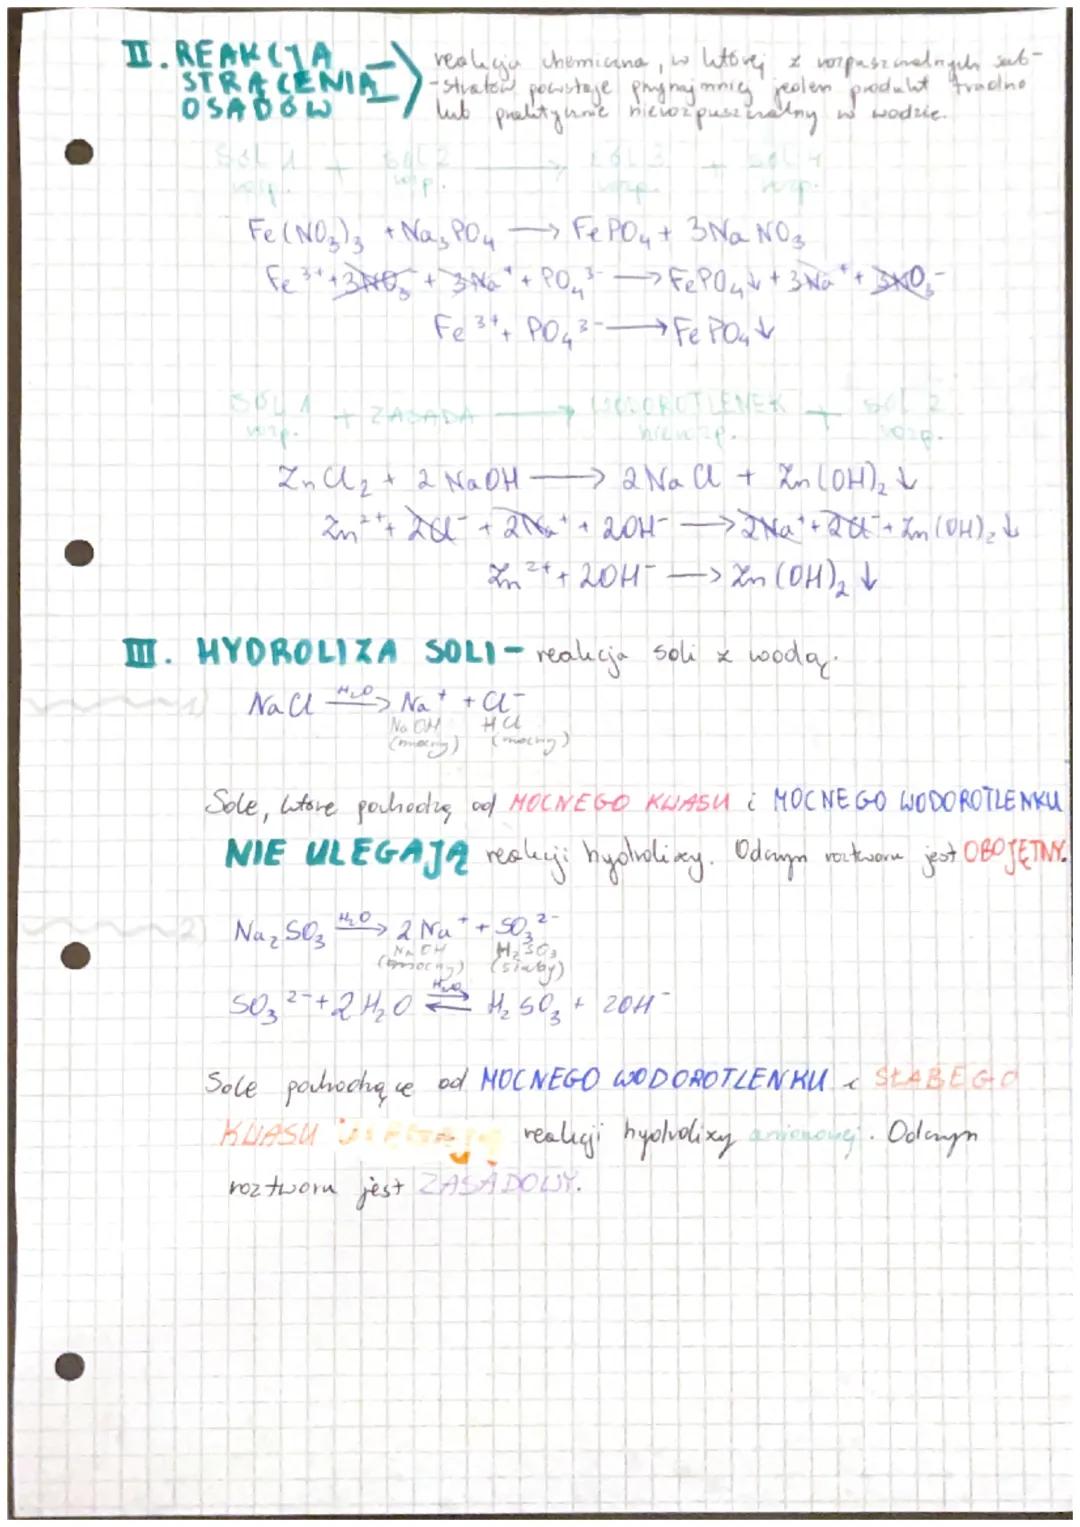 II. REAKCJA STRĄCENIA OSADÓW → reakcja chemiczna, w której z rozpuszczalnych sub-
-stratów powstaje przynajmniej jeden produkt trudno
lub praktycznie nierozpuszczalny w wodzie.
SÓL 1 + SÓL 2 → SÓL 3 + SÓL 4
rozp. rozp. rozp. rozp.
Fe(NO₃)₃ + Na₃PO₄ → FePO₄ + 3NaNO₃
Fe³⁺ + 3NO₃⁻ + 3Na⁺ + PO₄³⁻ → FePO₄↓ + 3Na⁺ + 3NO₃⁻
Fe³⁺ + PO₄³⁻ → FePO₄↓
SÓL 1 + ZASADA → WODOROTLENEK + SÓL 2
rozp. nierozp. rozp.
ZnCl₂ + 2NaOH → 2NaCl + Zn(OH)₂↓
Zn²⁺ + 2Cl⁻ + 2Na⁺ + 2OH⁻ → 2Na⁺ + 2Cl⁻ + Zn(OH)₂↓
Zn²⁺ + 2OH⁻ → Zn(OH)₂↓
III. HYDROLIZA SOLI - reakcja soli z wodą.
1) NaCl —H₂O→ Na⁺ + Cl⁻
NaOH HCl
(mocny) (mocny)
Sole, które pochodzą od MOCNEGO KWASU i MOCNEGO WODOROTLENKU
NIE ULEGAJĄ reakcji hydrolizy. Odczyn roztworu jest OBOJĘTNY.
2) Na₂SO₃ —H₂O→ 2Na⁺ + SO₃²⁻
NaOH H₂SO₃
(mocny) (słaby)
SO₃²⁻ + 2H₂O ⇌ H₂O H₂SO₃ + 2OH⁻
Sole pochodzące od MOCNEGO WODOROTLENKU i SŁABEGO
KWASU ULEGAJĄ reakcji hydrolizy anionowej. Odczyn
roztworu jest ZASADOWY.